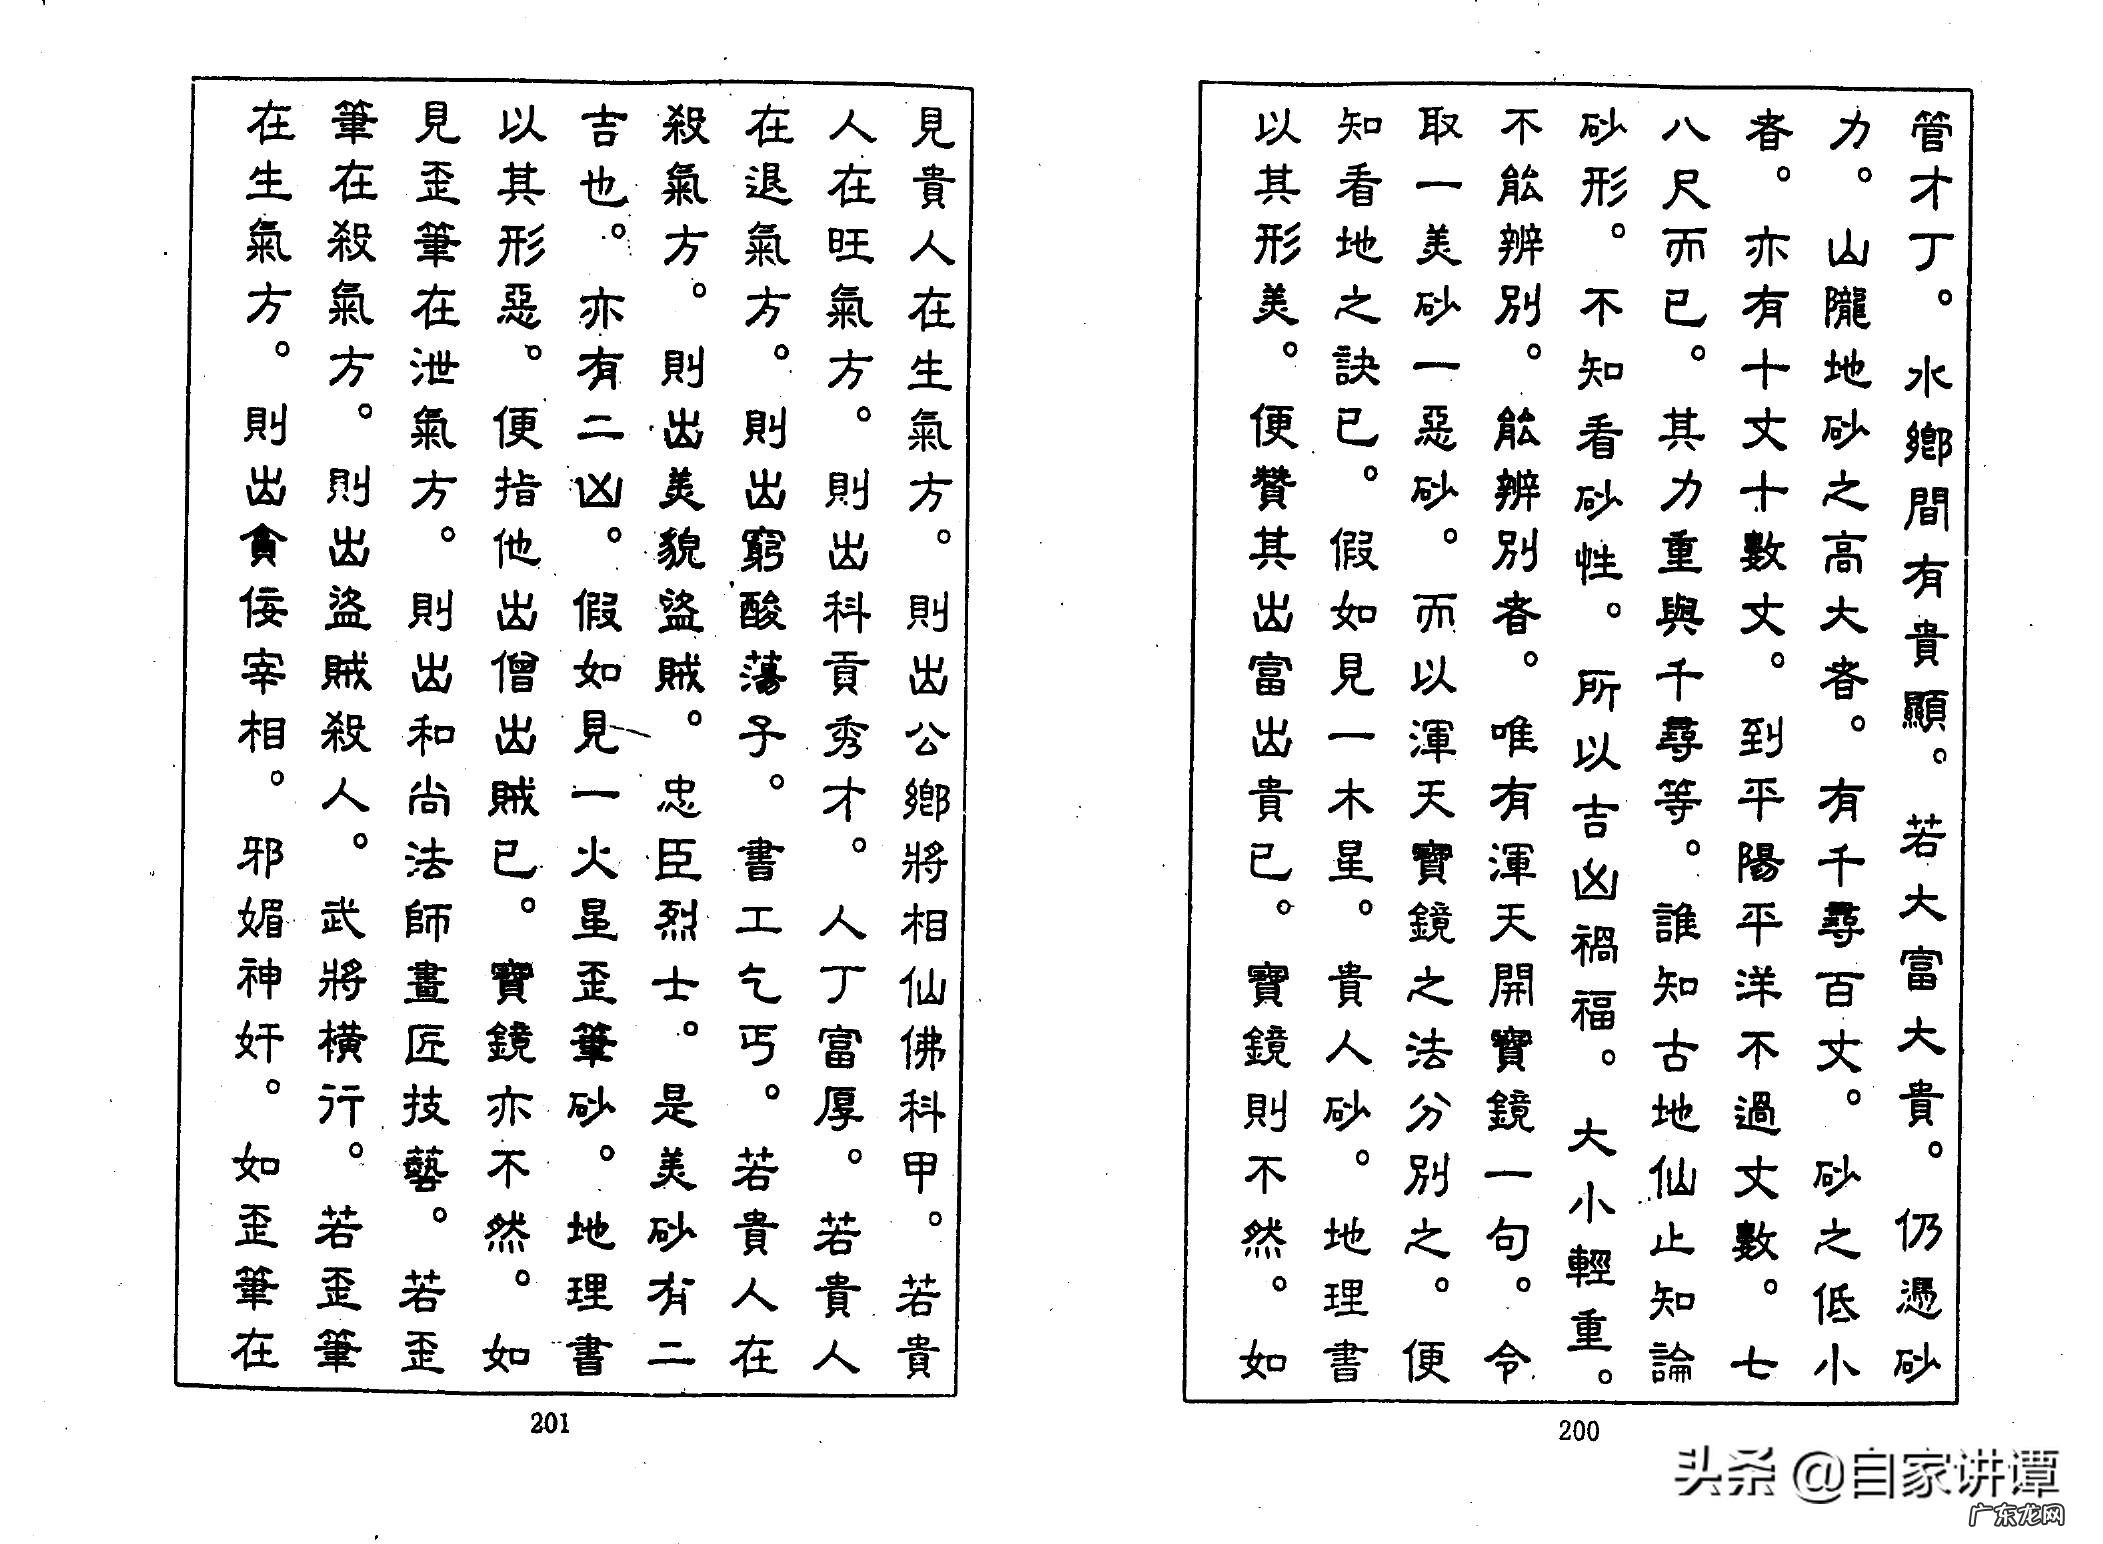 管才丁。水鄉間有貴顯。若大富大貴。仍憑砂
力。山隴地砂之高大者。有千尋百丈。砂之低小
者。亦有十丈十數丈。到平陽平洋不過丈數。七
八尺而已。其力重與千尋等。誰知古地仙止知論
砂形。不知看砂性。所以吉凶禍福。大小輕重。
不能辨別。能辨別者。唯有渾天開寶鏡一句。令
取一美砂一惡砂。而以渾天寶鏡之法分別之。便
知看地之訣已。假如見一木星。貴人砂。地理書
以其形美。便贊其出富出貴已。寶鏡則不然。如
200
見貴人在生氣方。則出公鄉將相仙佛科甲。若貴
人在旺氣方。則出科貢秀才。人丁富厚。若貴人
在退氣方。則出窮酸蕩子。書工乞丐。若貴人在
殺氣方。則出美貌盜賊。忠臣烈士。是美砂有二
吉也。亦有二凶。假如見一火星歪筆砂。地理書
以其形惡。便指他出僧出賊已。寶鏡亦不然。如
見歪筆在泄氣方。則出和尚法師畫匠技藝。若歪
筆在殺氣方。則出盜賊殺人。武將橫行。若歪筆
在生氣方。則出貪佞宰相。邪媚神奸。如歪筆在
201
头条 @自家讲谭
广东龙网